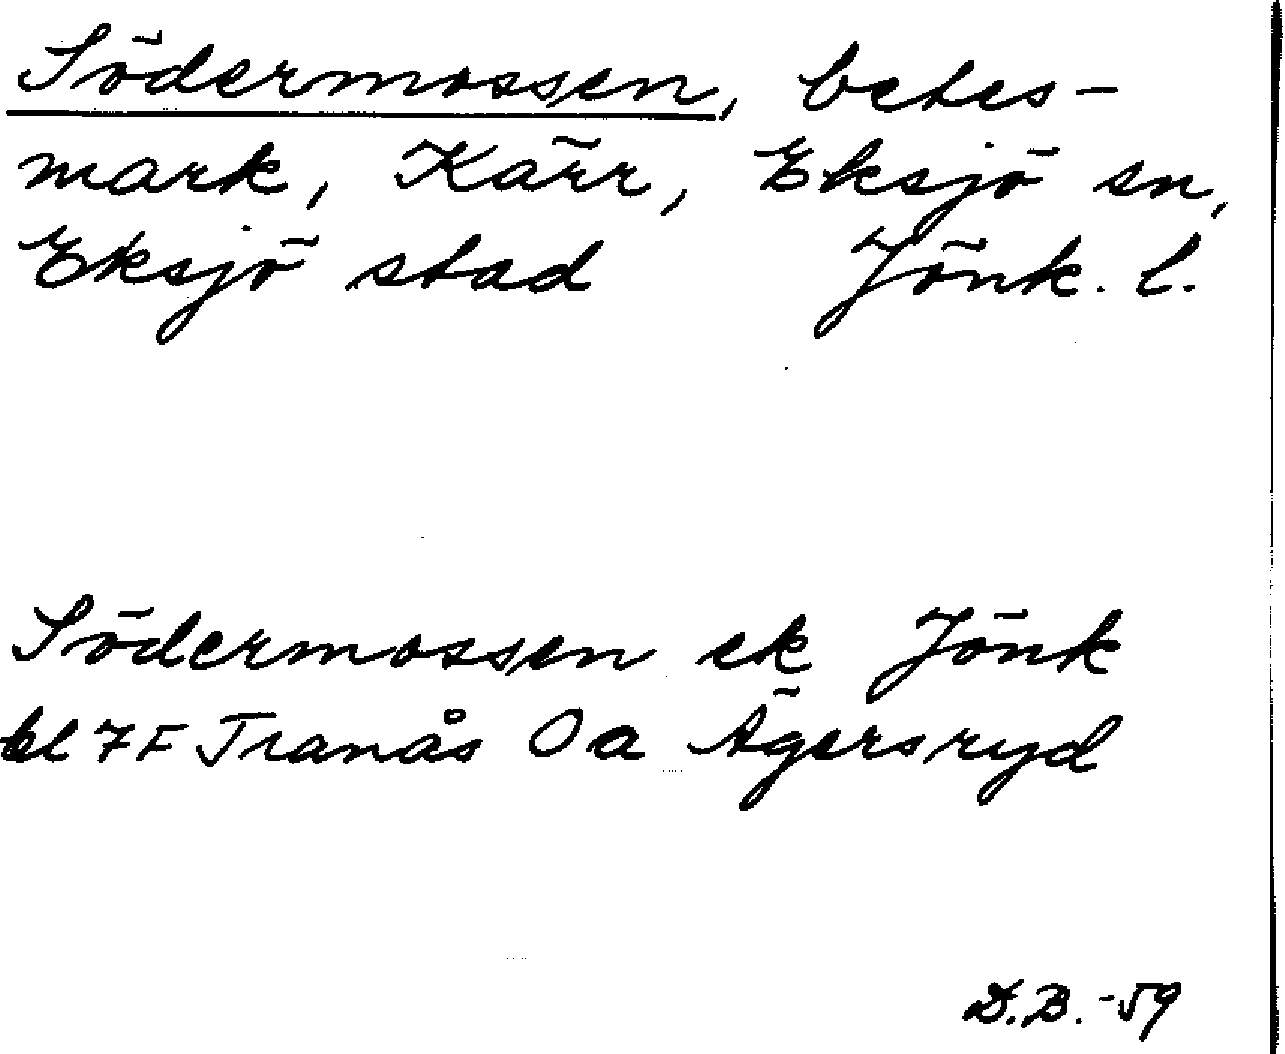 Södermossen, betes-
mark, Kärr, Eksjö sn,
Eksjö stad Jönk. l.
Södermossen ek Jönk
bl 7F Tranås 0a Ägersryd
D.B. -59